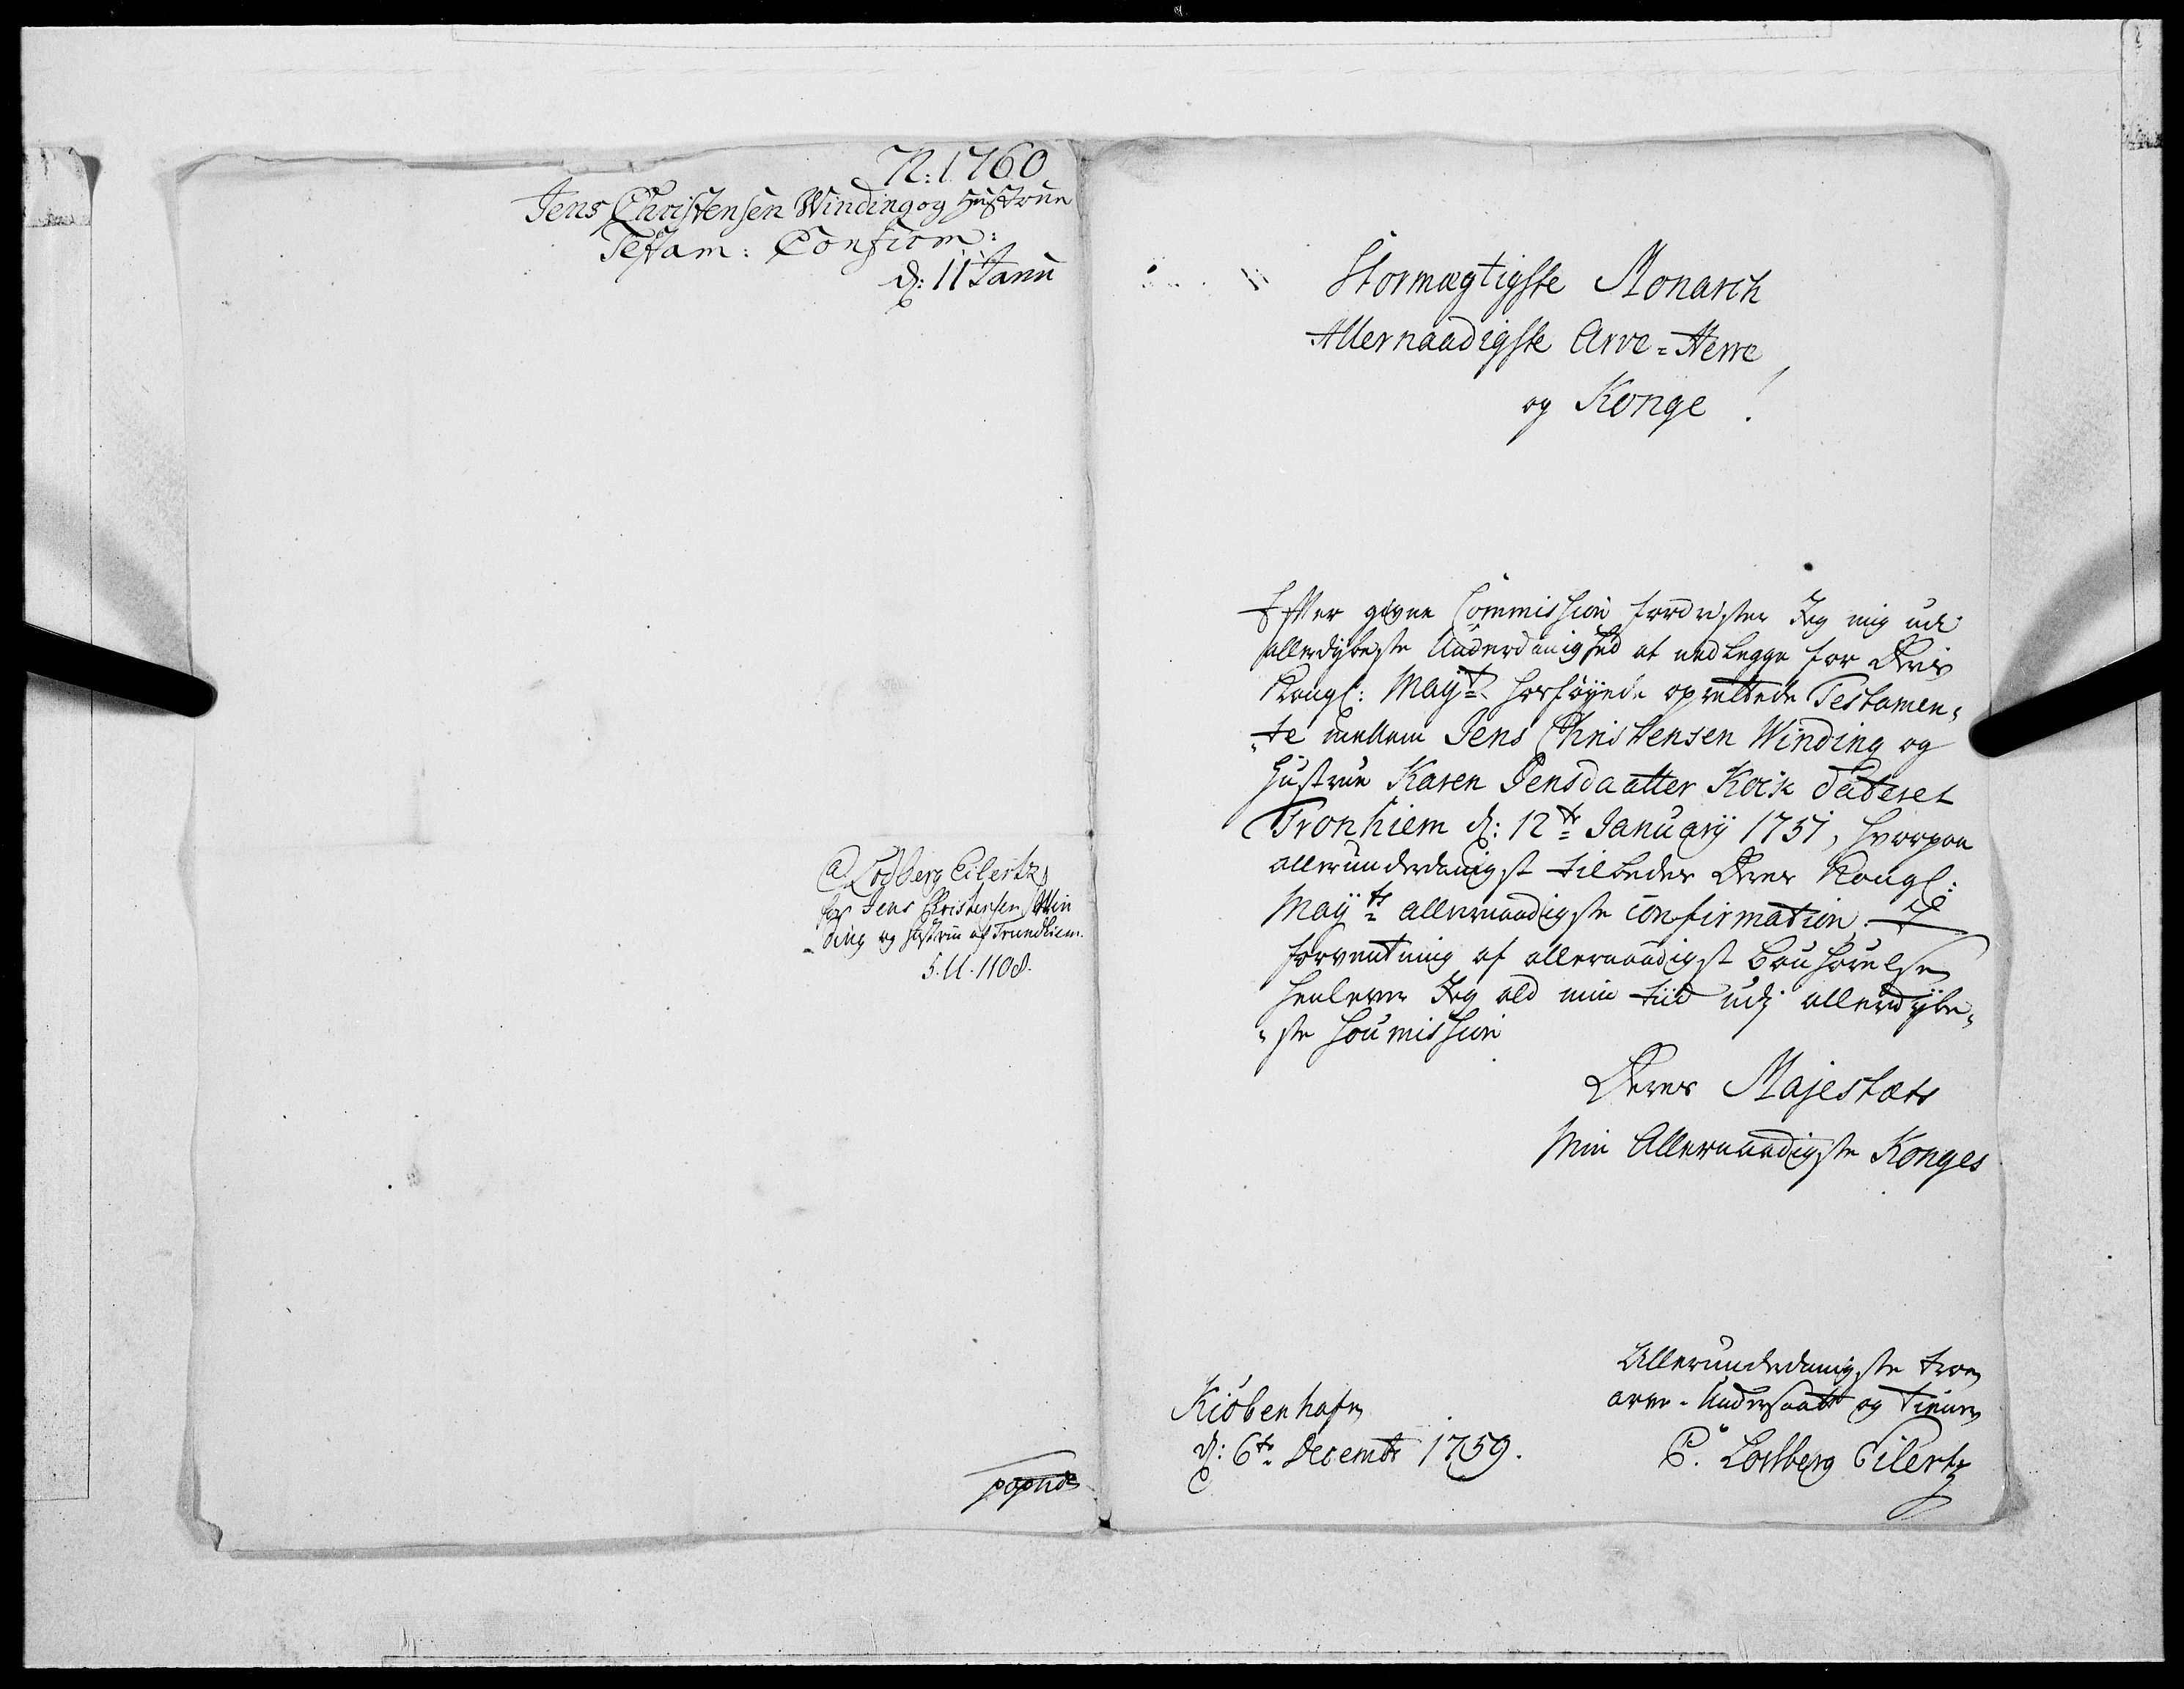 N: 1. 1760
Jens Christensen Winding og Hustrue
Testam: Confirm:
d: 11 Janu
C. Lodberg Eilertz
for Jens Christensen Win
ding og Hustrue af Trundhiem.
5. U. 1108.
Stormægtigste Monarch
Allernaadigste Arve=Herre
og Konge!
Efter givne Commission fordrister Jeg mig udi
allerdybeste Underdanighed at nedlegge for Deris
Kongl: Mayts hosføyede oprettede Testamen„
„te mellem Jens Christensen Winding og
Hustrue Karen Jensdaatter Koik dateret
Tronhiem d: 12te January 1751, hvorpaa
allerunderdanigst tilbedes Deres Kongl:
Mayts allernaadigste confirmation. I
forventning af allernaadigst bønhørelse
henlever Jeg ald min tiid udj allerdybe„
„ste soumission
Deres Majestæts
Min Allernaadigste Konges
Kiöbenhafn
d: 6te Decembr 1759.
Allerunderdanigste troe
arve-Undersaatt og tiener
C. Lodberg Eilertz